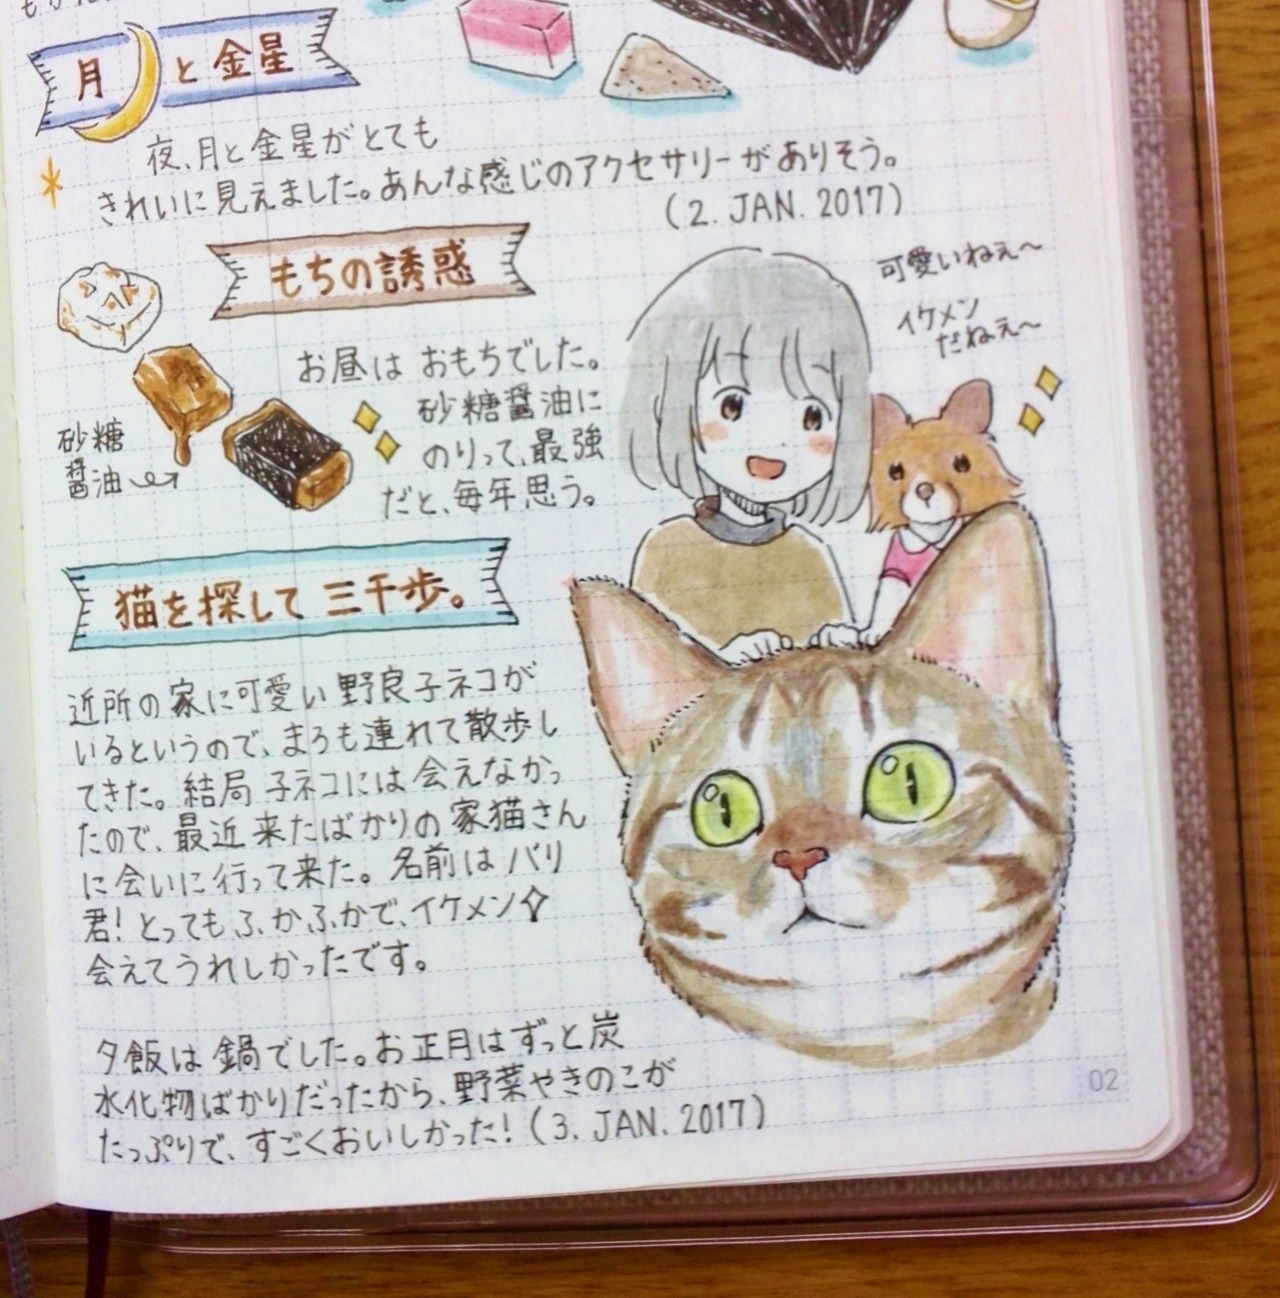 月と金星
夜、月と金星がとても
きれいに見えました。あんな感じのアクセサリーがありそう。
(2. JAN. 2017)
もちの誘惑
可愛いねぇ〜
イケメン
だねぇ〜
お昼は おもちでした。
砂糖醤油に
のりって、最強
だと、毎年思う。
砂糖
醤油
猫を探して 三千歩。
近所の家に可愛い野良子ネコが
いるというので、まろも連れて散歩し
てきた。結局 子ネコには 会えなかっ
たので、最近 来たばかりの 家猫さん
に会いに行って来た。名前は バリ
君! とっても ふかふかで、イケメン
会えてうれしかったです。
夕飯は 鍋でした。お正月はずっと炭
水化物ばかりだったから、野菜やきのこが
たっぷりで、すごくおいしかった! (3. JAN. 2017)
02